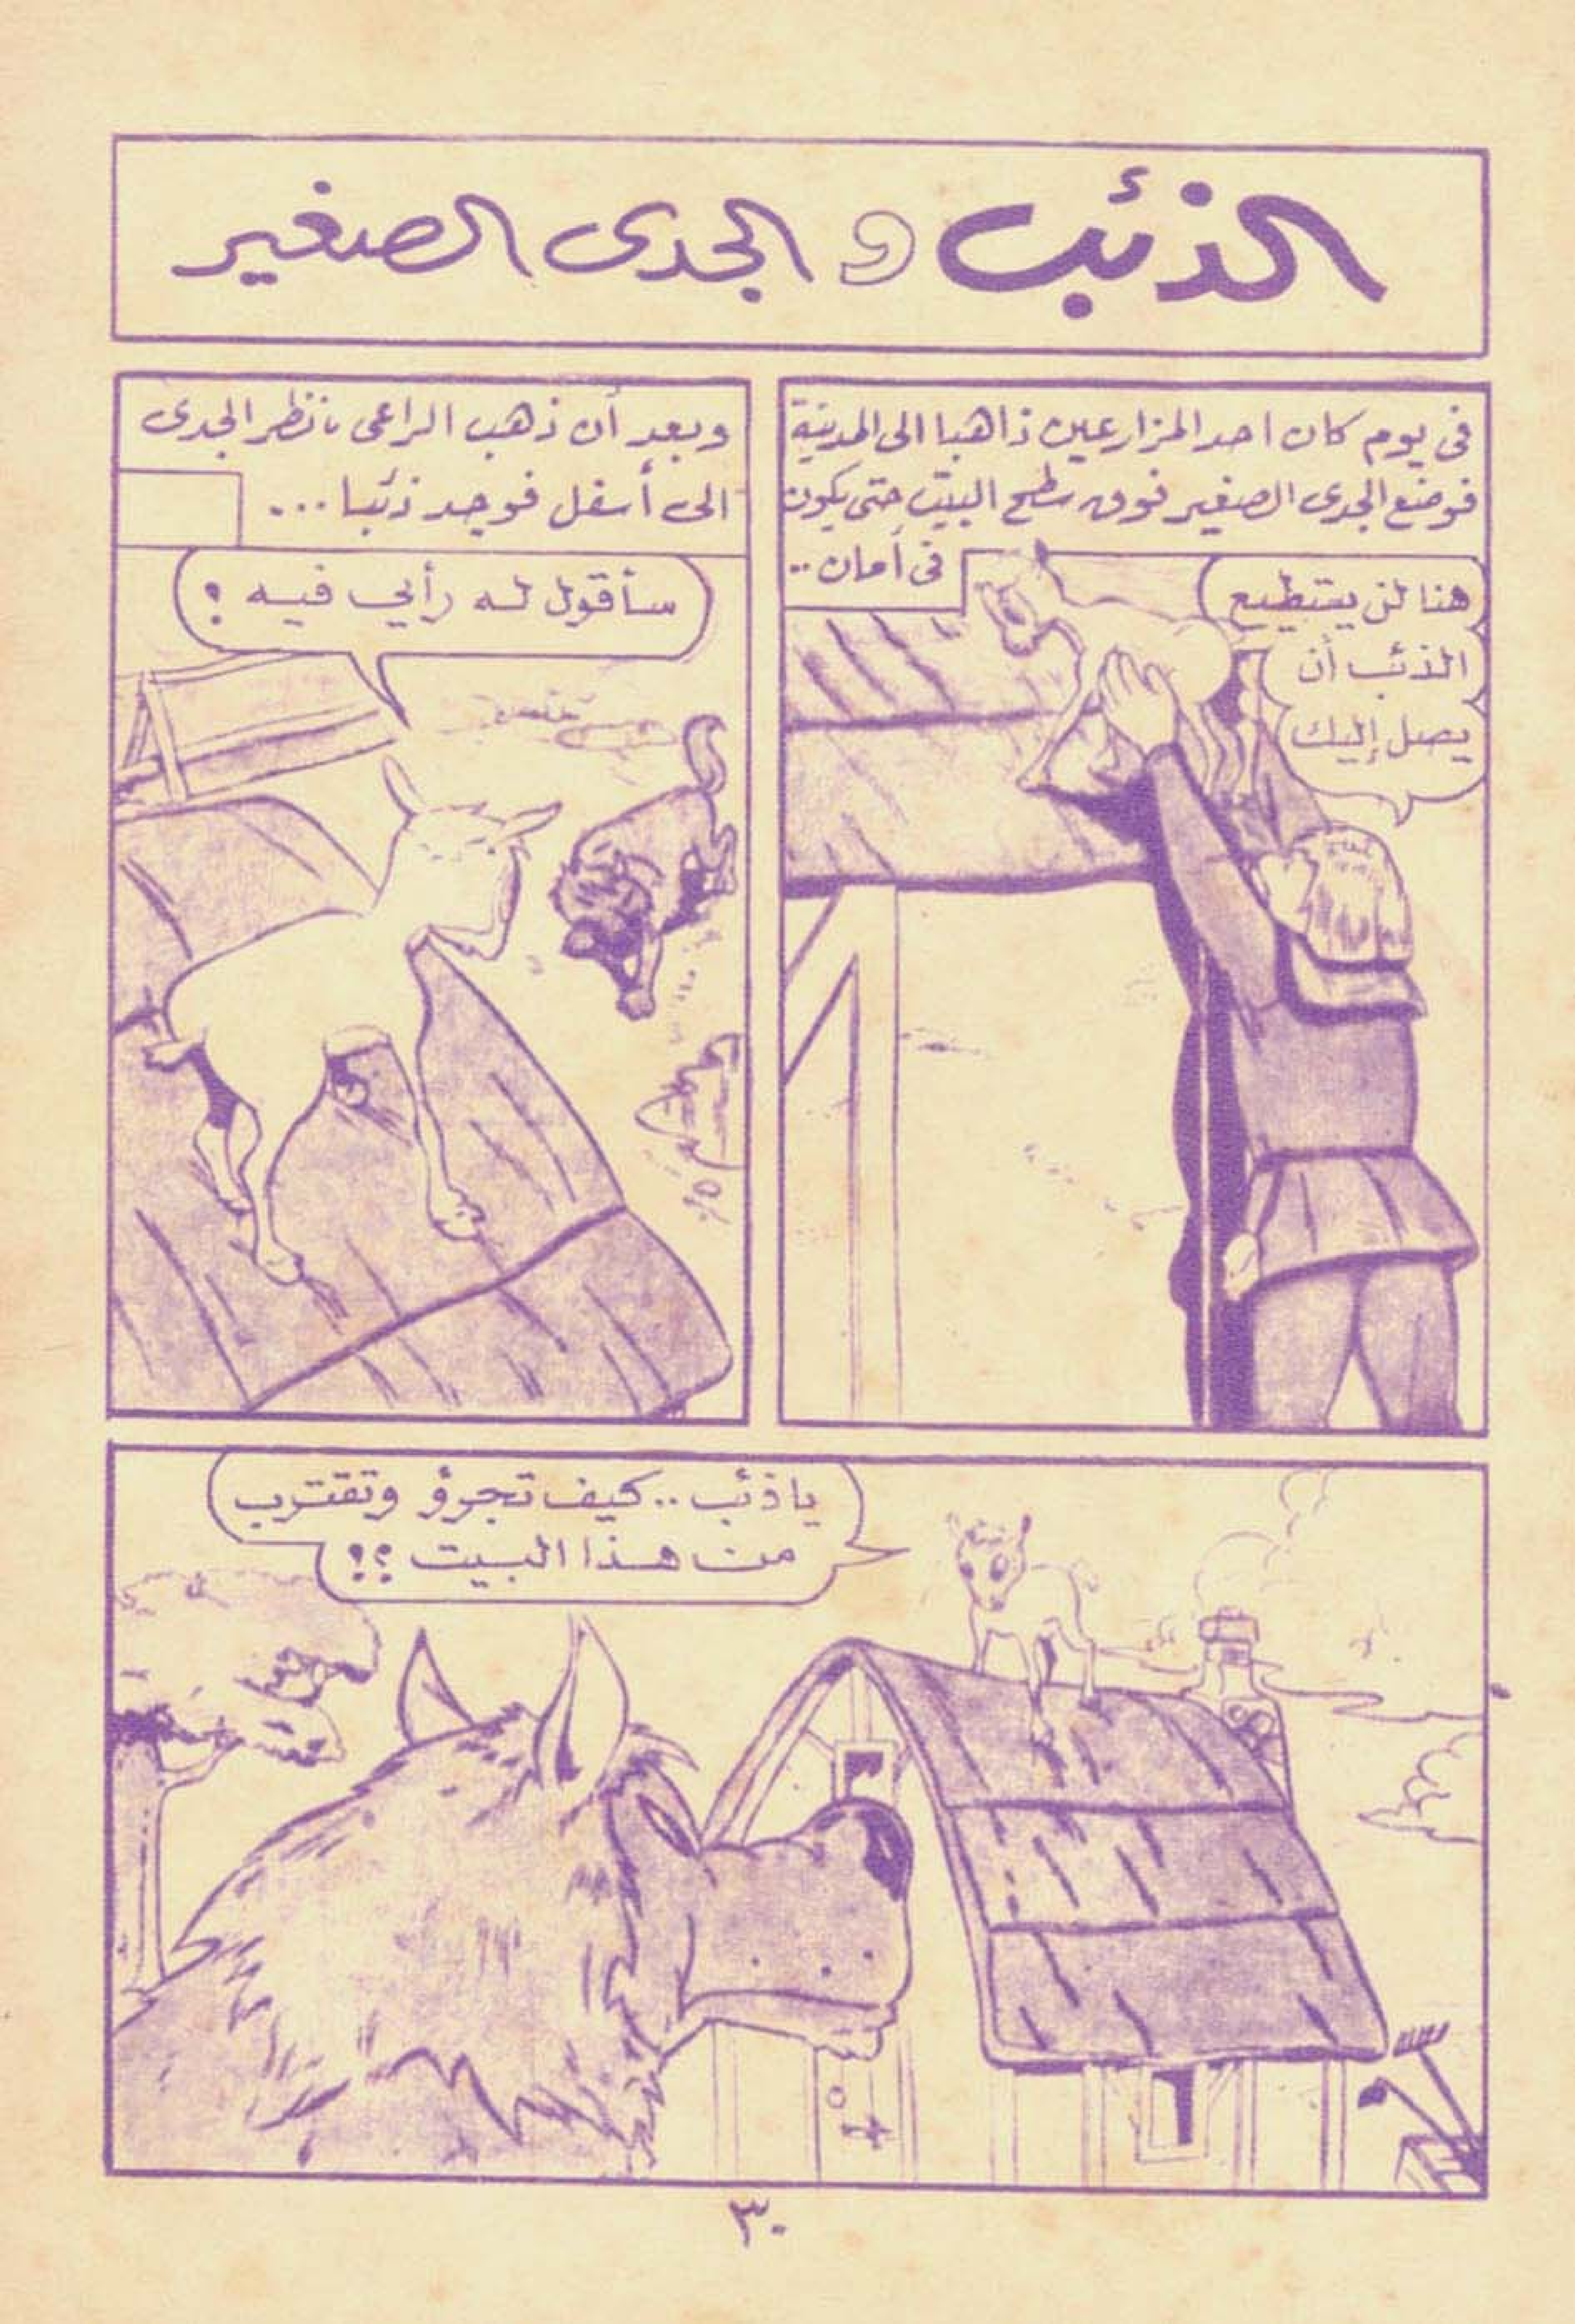 الذئب و الجدى الصغير
فى يوم كان احد المزارعين ذاهبا الى المدينة
فوضع الجدى الصغير فوق سطح البيت حتى يكون
فى أمان ..
هنا لن يستطيع
الذئب أن
يصل إليك
وبعد أن ذهب الراعى نظر الجدى
الى أسفل فوجد ذئبا ...
سأقول له رأيي فيه !
يا ذئب .. كيف تجرؤ وتقترب
من هذا البيت ؟!
٣٠